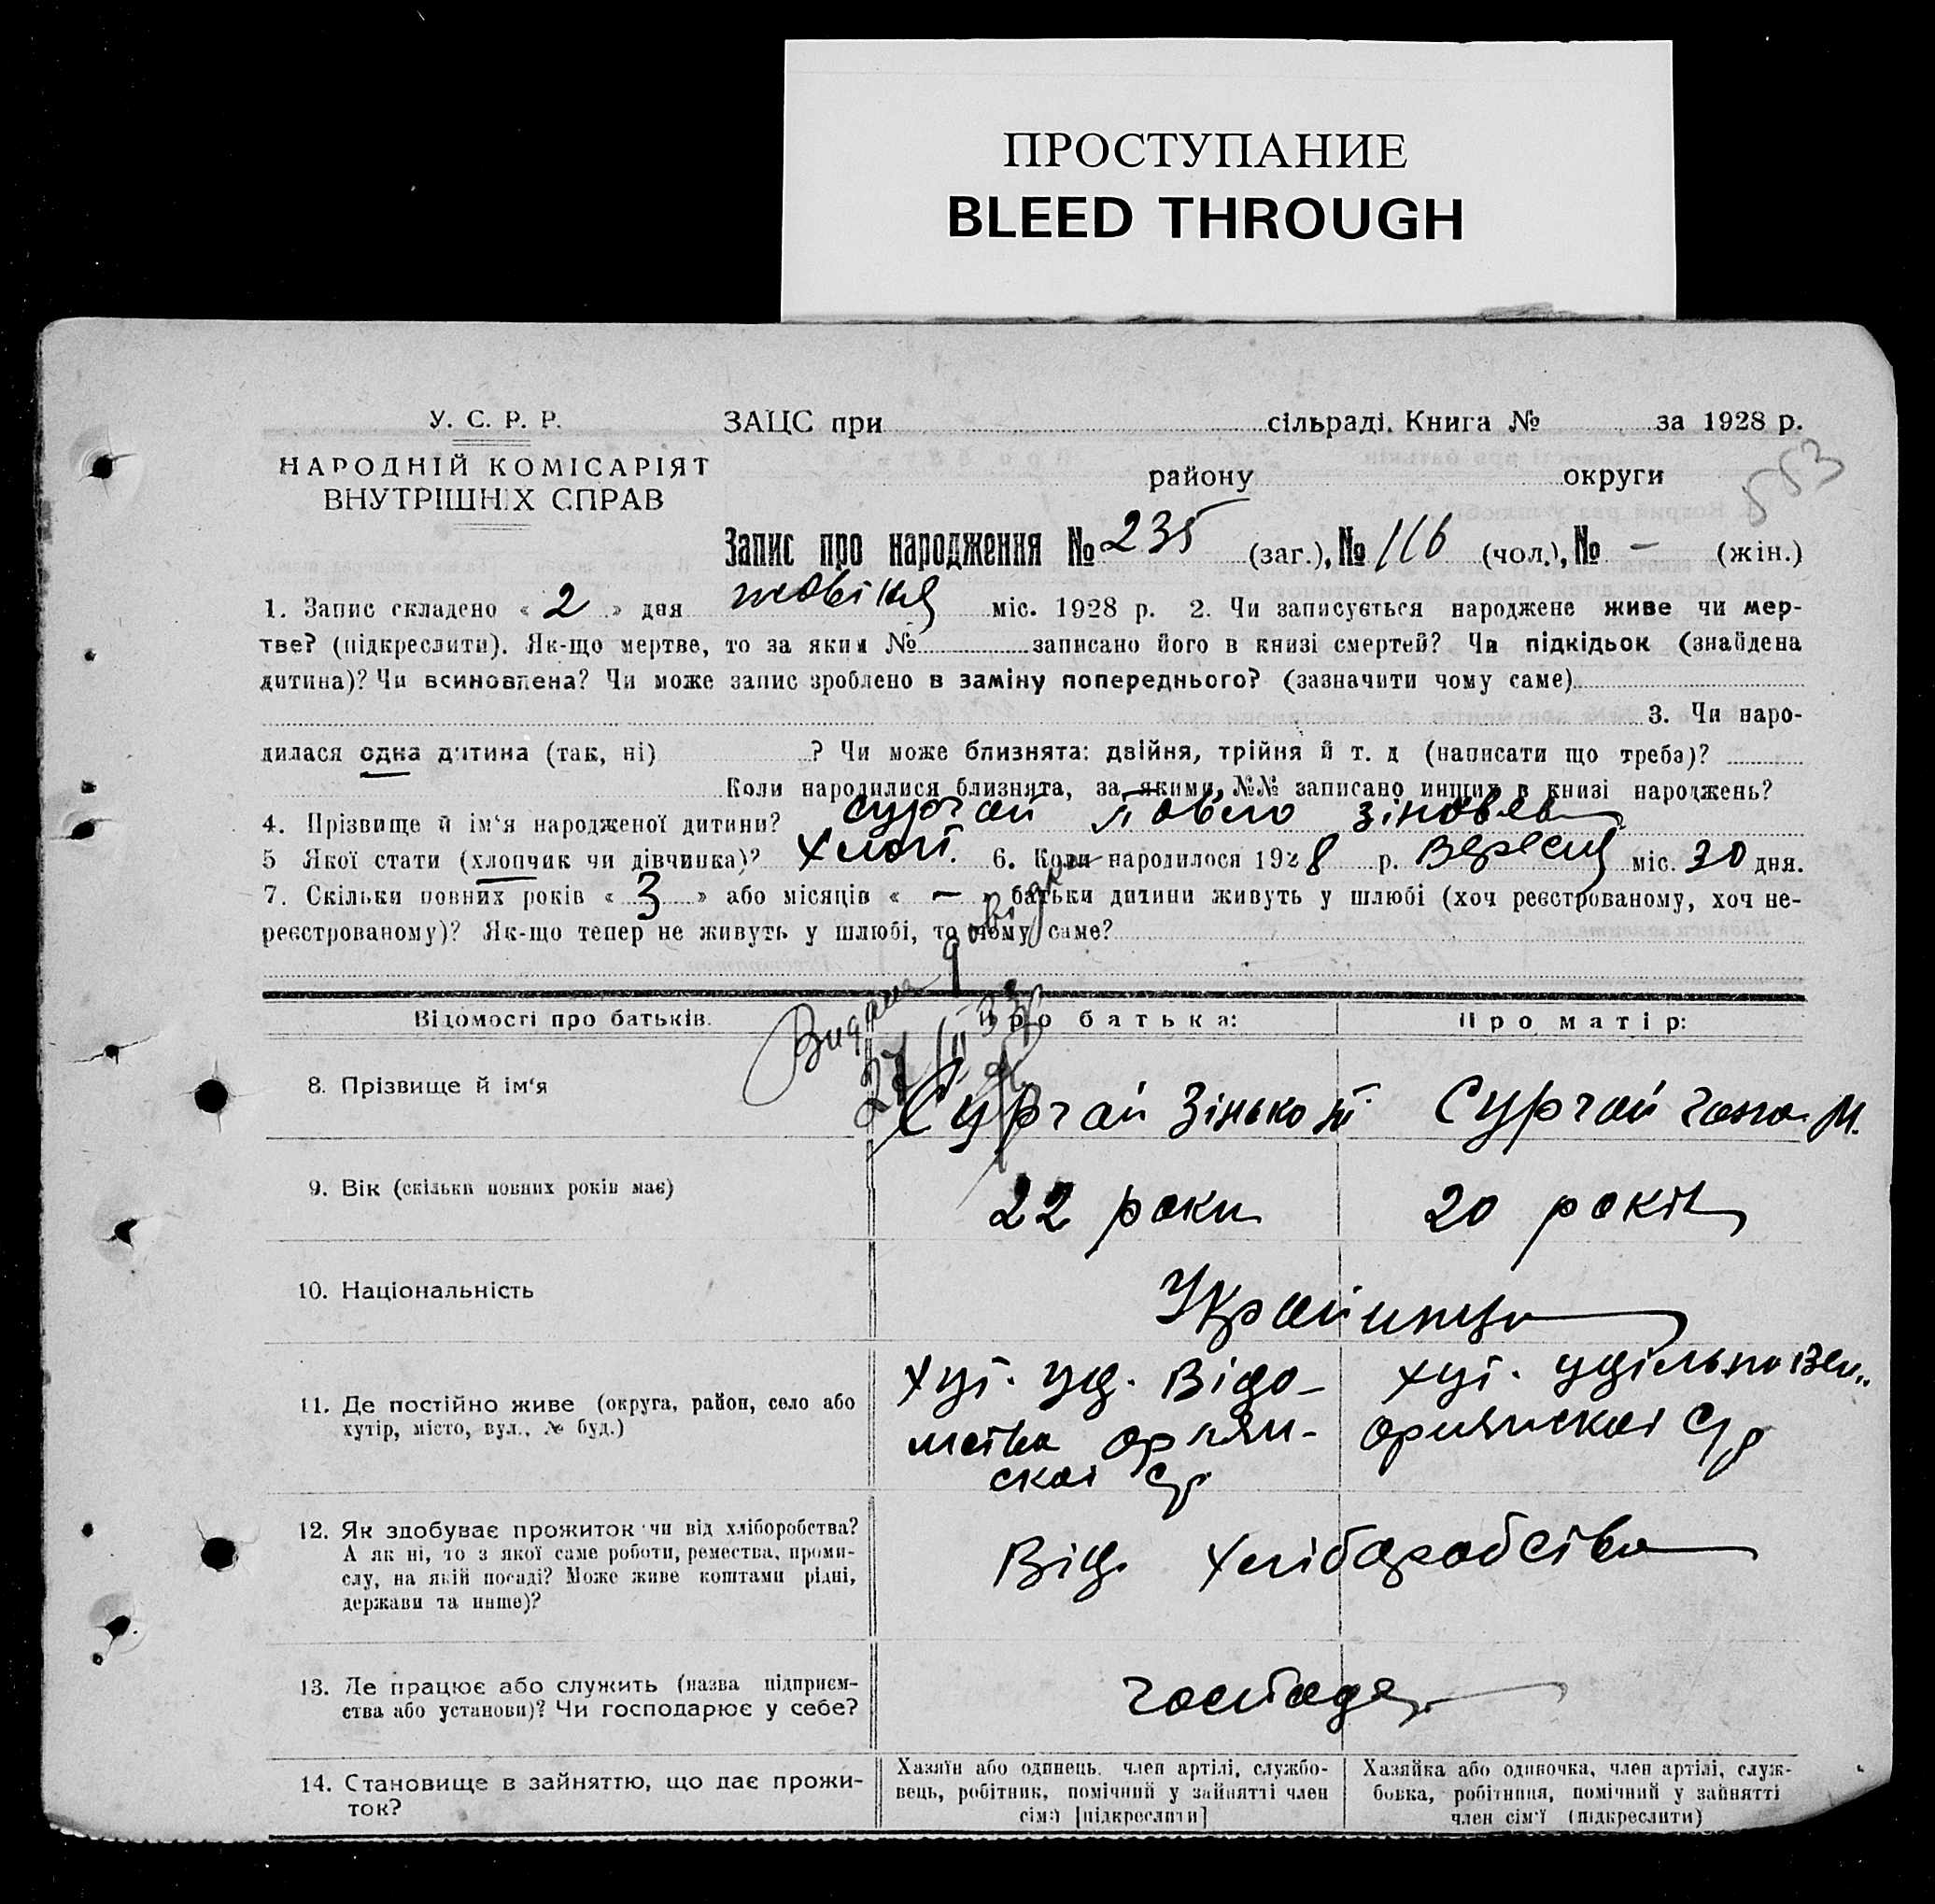 ПРОСТУПАНИЕ
BLEED THROUGH
У. С. Р. Р.
НАРОДНІЙ КОМІСАРІЯТ
ВНУТРІШНІХ СПРАВ
ЗАЦС при сільраді. Книга № за 1928 р.
району округи
553
Запис про народження № 235 (заг.), № 116 (чол.), № – (жін.)
1. Запис складено « 2 » дня жовтня міс. 1928 р. 2. Чи записується народжене живе чи мер-
тве? (підкреслити). Як-що мертве, то за яким № записано його в книзі смертей? Чи підкідьок (знайдена
дитина)? Чи всиновлена? Чи може запис зроблено в заміну попереднього? (зазначити чому саме)
3. Чи наро-
дилася одна дитина (так, ні) ? Чи може близнята: двійня, трійня й т. д (написати що треба)?
Коли народилися близнята, за якими №№ записано инших в книзі народжень?
4. Прізвище й ім‘я народженої дитини? Сургай Павло Зіновьев
5 Якої стати (хлопчик чи дівчинка)? Хлоп. 6. Коли народилося 1928 р. Вересня міс. 30 дня.
7. Скільки повних років « 3 » або місяців « – » батьки дитини живуть у шлюбі (хоч реєстрованому, хоч не-
реєстрованому)? Як-що тепер не живуть у шлюбі, то чому саме?
Видана довідка
27/II 33р
Відомості про батьків. Про батька: Про матір:
8. Прізвище й ім‘я
Сургай Зінько Сургай Ганна М.
9. Вік (скільки повних років має)
22 роки 20 років
10. Національність
Українці
11. Де постійно живе (округа, район, село або
хутір, місто, вул., № буд.)
хут. уд. Відо-
мства Орлян-
ской ср
хут. удільно Вед.
орлянской Ср
12. Як здобуває прожиток чи від хліборобства?
А як ні, то з якої саме роботи, ремества, проми-
слу, на якій посаді? Може живе коштами рідні,
держави та инше)?
Від Хліборобства
13. Де працює або служить (назва підприєм-
ства або установи)? Чи господарює у себе?
господар
14. Становище в зайняттю, що дає прожи-
ток?
Хазяїн або одинець, член артілі, службо-
вець, робітник, помічний у зайнятті член
сім‘ї [підкреслити]
Хазяйка або одиночка, член артілі, служ-
бовка, робітниця, помічний у зайнятті
член сім‘ї (підкреслити)